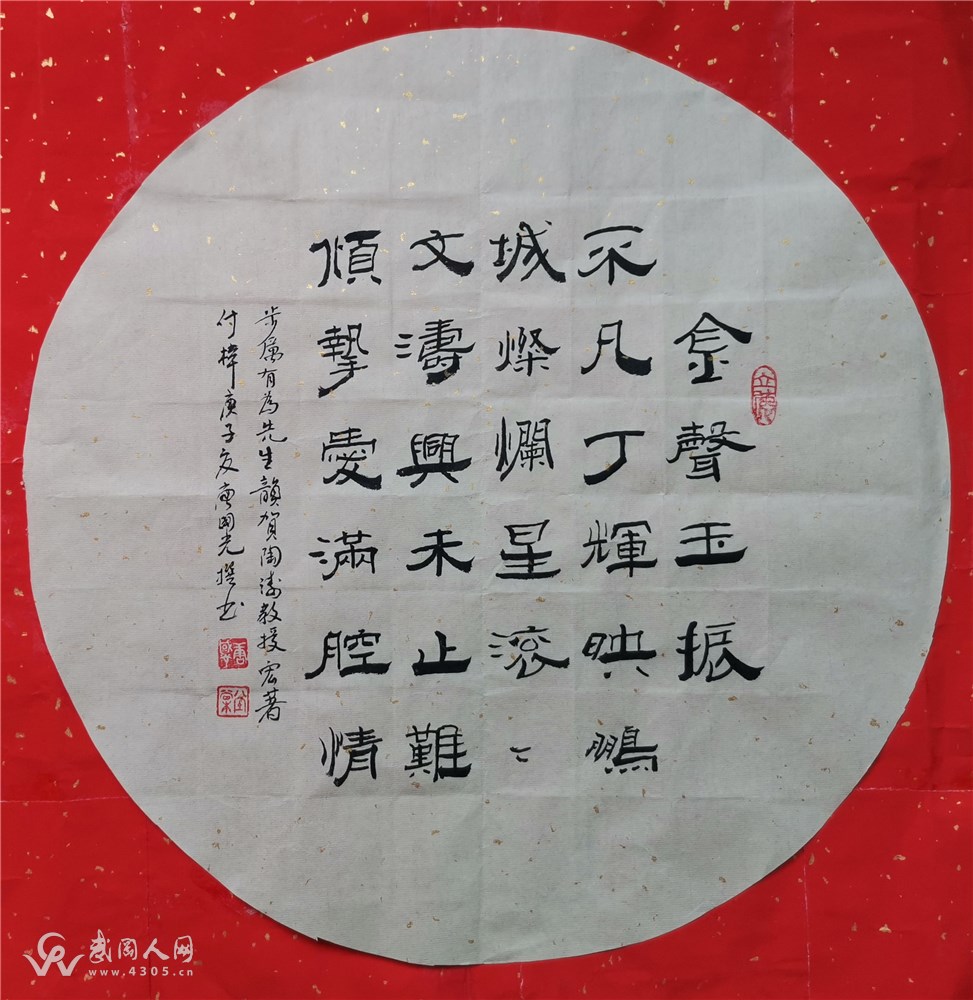 金聲玉振
不凡丁輝映鵬
城燦爛星滚〻
文濤興未止難
傾摯愛滿腔情
步属有為先生韻賀陶濤教授宏著
付梓庚子夏唐国光撰书
武冈人网
www.4305.cn